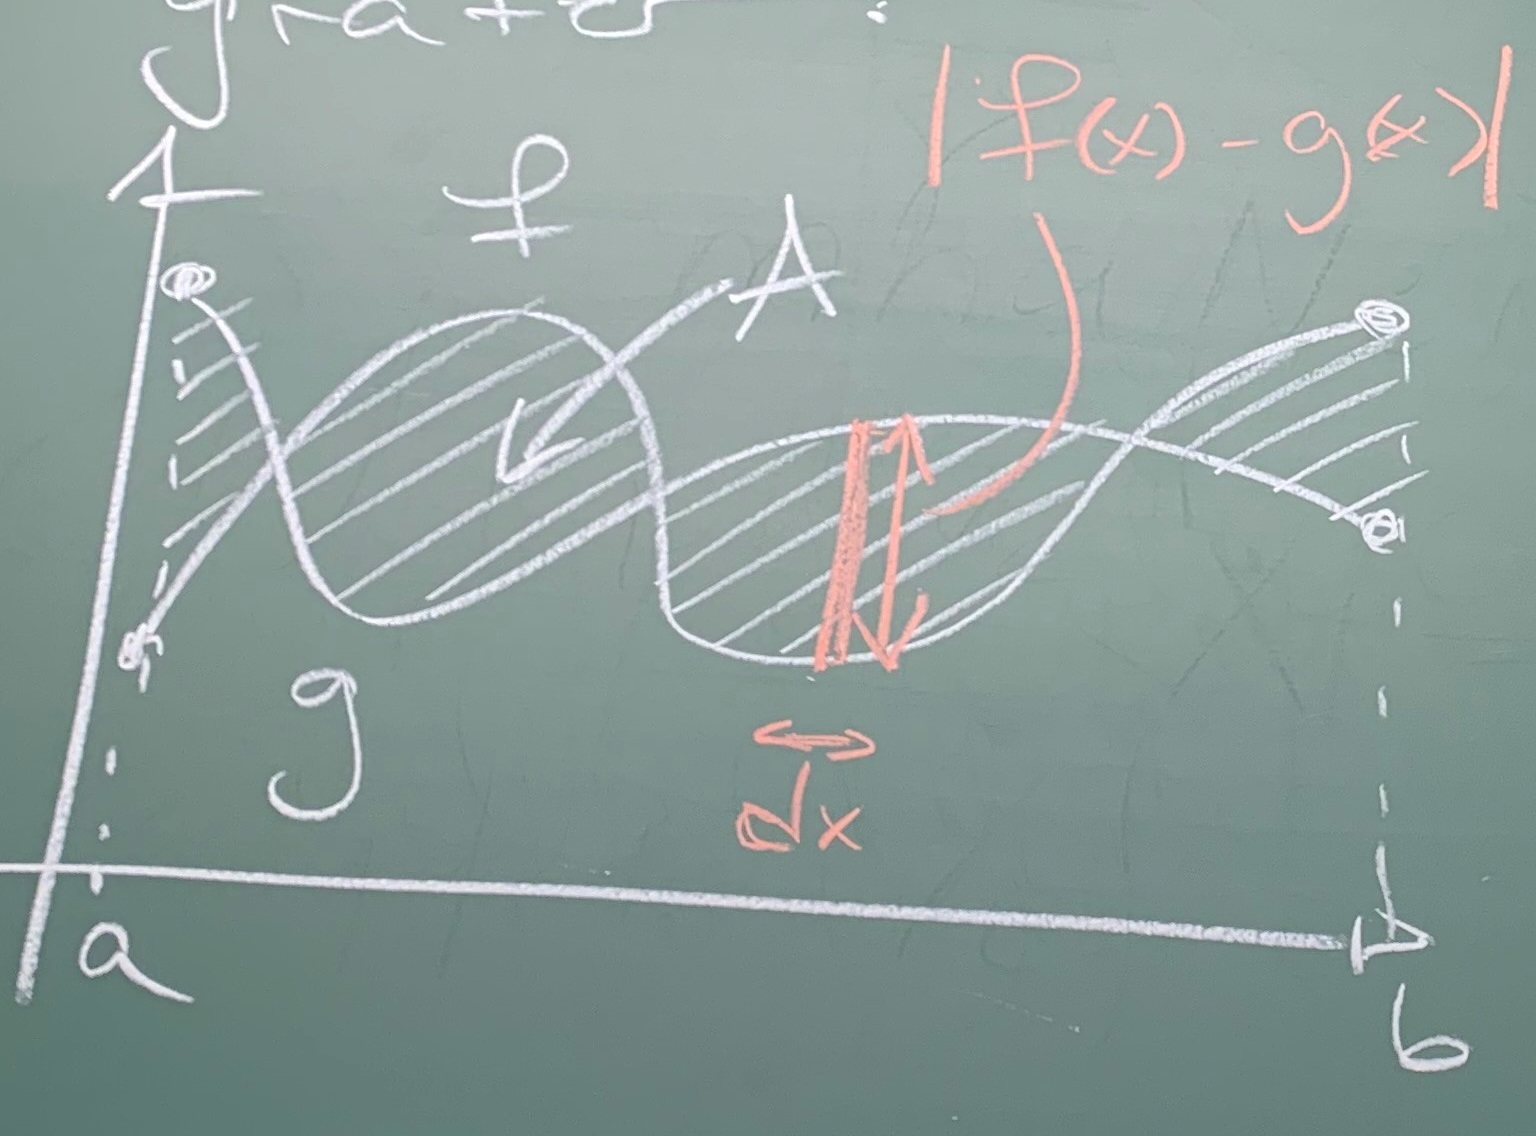 |f(x) - g(x)|
f
A
g
dx
a
b